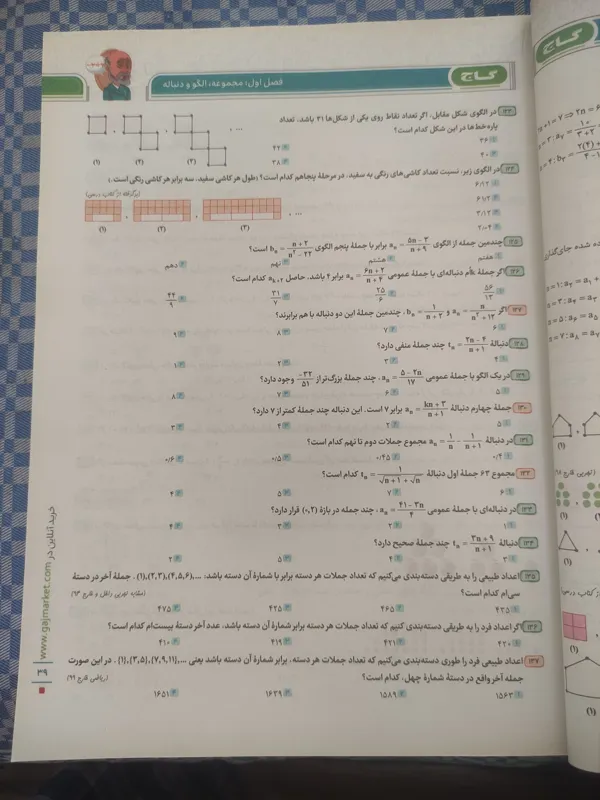 گاج
فصل اول: مجموعه، الگو و دنباله
۱۲۳ در الگوی شکل مقابل، اگر تعداد نقاط روی یکی از شکل‌ها ۳۱ باشد، تعداد
پاره‌خط‌ها در این شکل کدام است؟
۳۶ ۴۲
۴۰ ۳۸
(۱) (۲) (۳)
۱۲۴ در الگوی زیر، نسبت تعداد کاشی‌های رنگی به سفید، در مرحلهٔ پنجاهم کدام است؟ (طول هر کاشی سفید، سه برابر هر کاشی رنگی است.)
(برگرفته از کتاب درسی)
۶/۱۲
۶۱/۲
۳/۱۲
۲/۰۴
(۱) (۲) (۳)
۱۲۵ چندمین جمله از الگوی a_n = (۵n − ۳)/(n + ۹) برابر با جملهٔ پنجم الگوی b_n = (n + ۲)/(n² − ۲۲) است؟
هفتم هشتم نهم دهم
۱۲۶ اگر جملهٔ kام دنباله‌ای با جملهٔ عمومی a_n = (۶n + ۲)/(n + ۴) برابر ۴ باشد، حاصل a_{k+2} کدام است؟
۵۶/۱۳ ۲۵/۶ ۳۱/۷ ۴۴/۹
۱۲۷ اگر a_n = n/(n² + ۱۲) و b_n = ۱/(n + ۲)، چندمین جملهٔ این دو دنباله با هم برابرند؟
۶ ۷ ۸ ۹
۱۲۸ دنبالهٔ t_n = (۲n − ۴)/(n + ۱) چند جملهٔ منفی دارد؟
۴ ۳ ۲ ۱
۱۲۹ در یک الگو با جملهٔ عمومی a_n = (۵ − ۲n)/۱۷، چند جملهٔ بزرگ‌تر از −۳۲/۵۱ وجود دارد؟
۵ ۶ ۷ ۸
۱۳۰ جملهٔ چهارم دنبالهٔ a_n = (kn + ۳)/(n + ۱) برابر ۷ است. این دنباله چند جملهٔ کمتر از ۷ دارد؟
۵ ۲ ۴ ۳
۱۳۱ در دنبالهٔ a_n = ۱/n − ۱/(n + ۱) مجموع جملات دوم تا نهم کدام است؟
۰/۴ ۰/۴۵ ۰/۵ ۰/۶
۱۳۲ مجموع ۶۳ جملهٔ اول دنبالهٔ t_n = ۱/(√(n + ۱) + √n) کدام است؟
۶ ۷ ۵ ۴
۱۳۳ در دنباله‌ای با جملهٔ عمومی a_n = (۴۱ − ۳n)/۴، چند جمله در بازهٔ (۰, ۲) قرار دارد؟
۱ ۲ ۳ ۴
۱۳۴ دنبالهٔ t_n = (۳n + ۹)/(n + ۱) چند جملهٔ صحیح دارد؟
۳ ۴ ۵ ۲
۱۳۵ اعداد طبیعی را به طریقی دسته‌بندی می‌کنیم که تعداد جملات هر دسته برابر با شمارهٔ آن دسته باشد: (۱), (۲, ۳), (۴, ۵, ۶), ... . جملهٔ آخر در دستهٔ
سی‌ام کدام است؟
۴۳۵ ۴۶۵ ۴۲۵ ۴۷۵
۱۳۶ اگر اعداد فرد را به طریقی دسته‌بندی کنیم که تعداد جملات هر دسته برابر با شمارهٔ آن دسته باشد، عدد آخر دستهٔ بیست‌ام کدام است؟
۴۲۰ ۴۲۱ ۴۱۹ ۴۱۰
۱۳۷ اعداد طبیعی فرد را طوری دسته‌بندی می‌کنیم که تعداد جملات هر دسته، برابر شمارهٔ آن دسته باشد یعنی ... , (۷, ۹, ۱۱), (۳, ۵), (۱)، در این صورت
جمله آخر واقع در دستهٔ شمارهٔ چهل، کدام است؟
(ریاضی خارج ۹۹)
۱۵۶۳ ۱۵۸۹ ۱۶۳۹ ۱۶۵۱
خرید آنلاین در www.gajmarket.com
۳۹
گاج